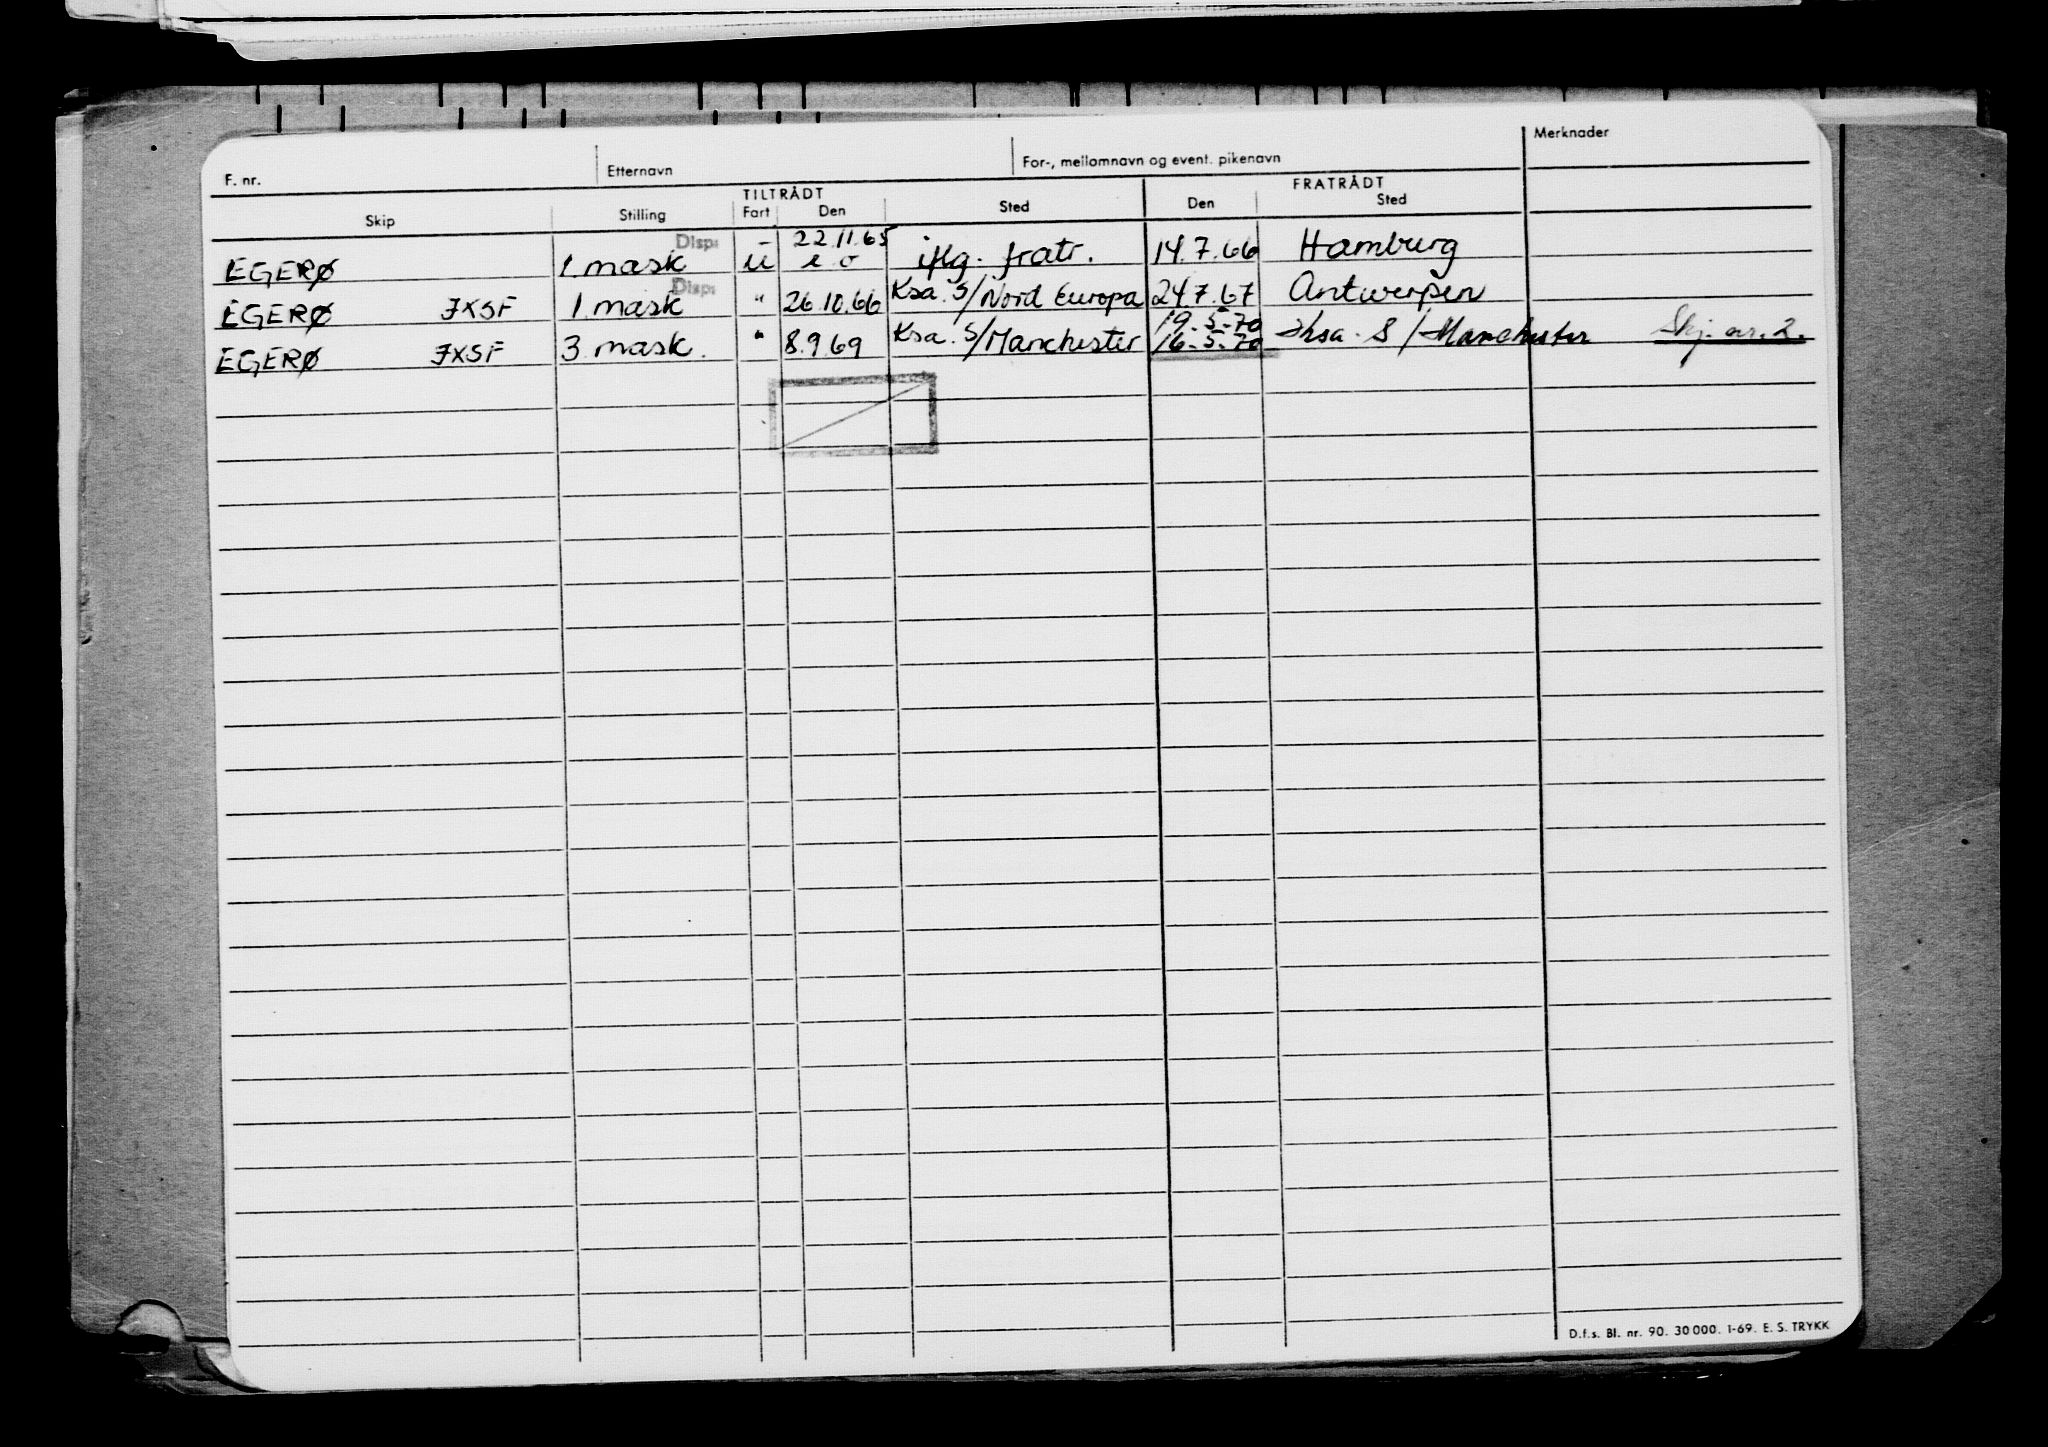 F. nr. Etternavn For-, mellomnavn og event. pikenavn Merknader
TILTRÅDT FRATRÅDT
Skip Stilling Fart Den Sted Den Sted
EGERØ 1. mask Disp: - u 22.11.65 e.o iflg. fratr. 14.7.66 Hamburg
EGERØ JXSF 1. mask Disp: " 26.10.66 Ksa. S/Nord Europa 24.7.67 Antwerpen
19-5-70
EGERØ JXSF 3. mask. " 8.9.69 Ksa. S/Manchester 16-5-70 Ksa. S/Manchester Skj. nr. 2.
D.f.s. Bl. nr. 90. 30 000. 1-69. E. S. TRYKK